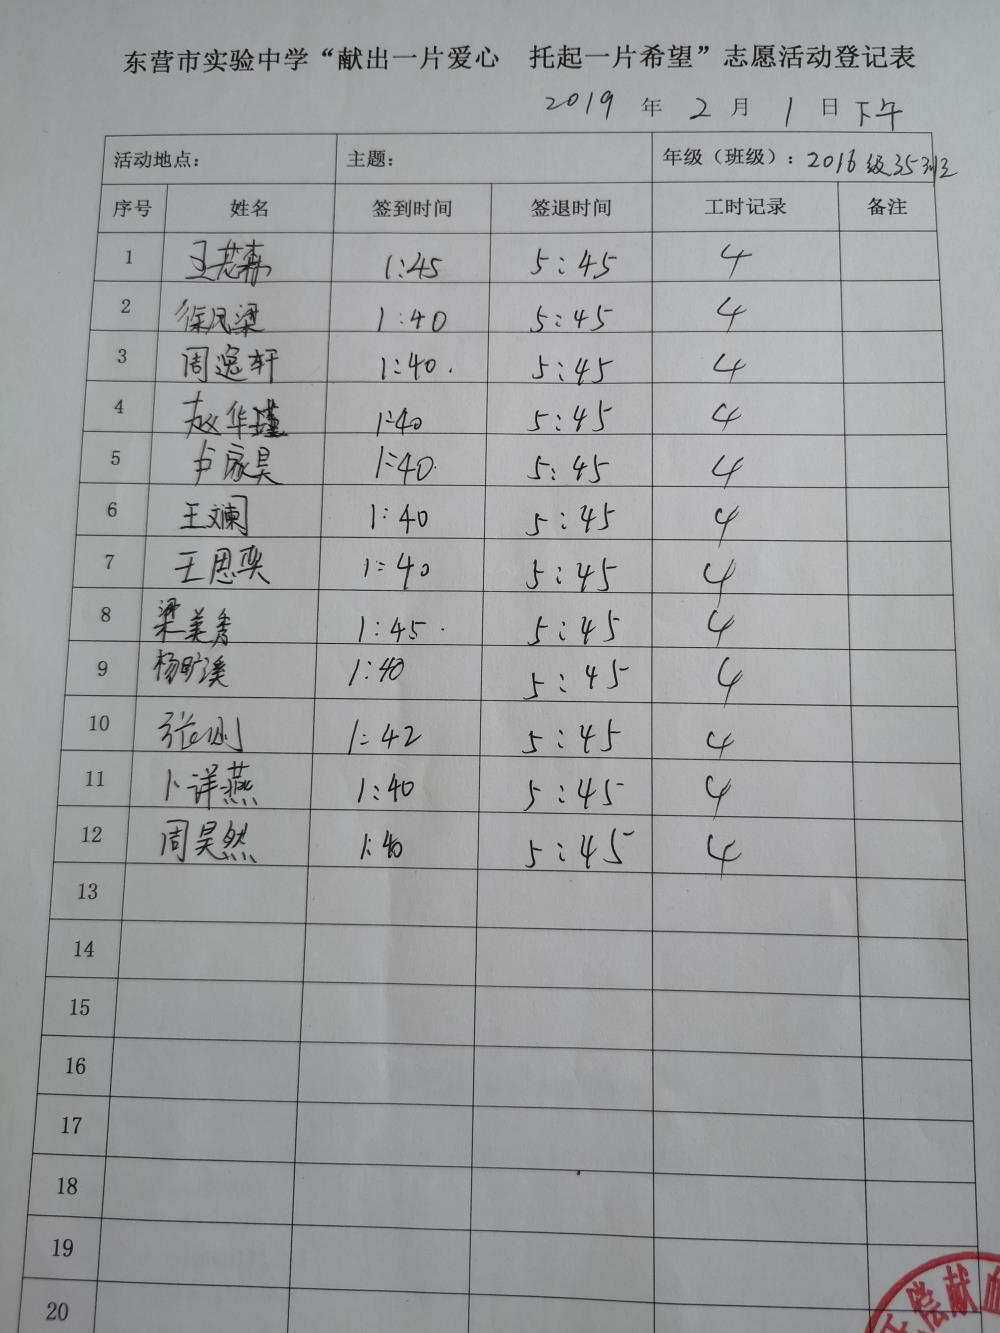 东营市实验中学“献出一片爱心 托起一片希望”志愿活动登记表
2019 年 2 月 1 日 下午
活动地点： 主题： 年级（班级）：2016级35班
序号 姓名 签到时间 签退时间 工时记录 备注
1 王若森 1:45 5:45 4
2 徐凤梁 1:40 5:45 4
3 周逸轩 1:40. 5:45 4
4 赵华瑾 1:40 5:45 4
5 卢家昊 1:40. 5:45 4
6 王文阑 1:40 5:45 4
7 王思奕 1:40 5:45 4
8 梁美秀 1:45. 5:45 4
9 杨旷溪 1:40 5:45 4
10 张 1:42 5:45 4
11 卜详燕 1:40 5:45 4
12 周昊然 1:40 5:45 4
13
14
15
16
17
18
19
20
偿献血